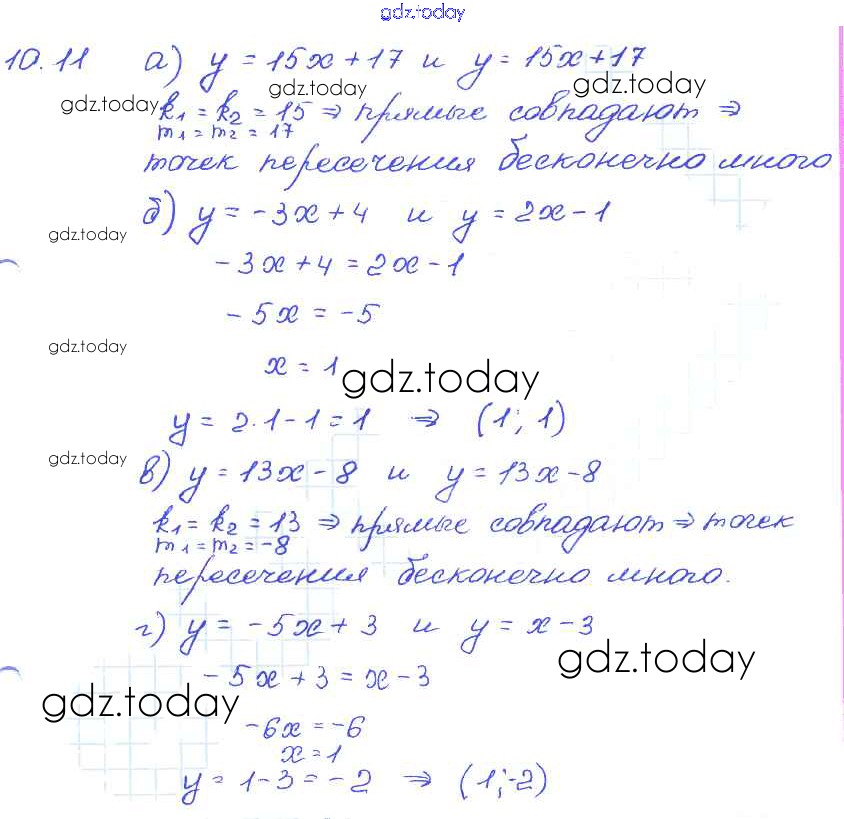 gdz.today
10.11 а) y = 15x + 17 и y = 15x + 17
gdz.today gdz.today gdz.today
k₁ = k₂ = 15 ⇒ прямые совпадают ⇒
m₁ = m₂ = 17
точек пересечения бесконечно много
б) y = -3x + 4 и y = 2x - 1
gdz.today
-3x + 4 = 2x - 1
-5x = -5
gdz.today
x = 1
gdz.today
y = 2·1 - 1 = 1 ⇒ (1; 1)
gdz.today
в) y = 13x - 8 и y = 13x - 8
k₁ = k₂ = 13 ⇒ прямые совпадают ⇒ точек
m₁ = m₂ = -8
пересечения бесконечно много.
г) y = -5x + 3 и y = x - 3
gdz.today
-5x + 3 = x - 3
gdz.today
-6x = -6
x = 1
y = 1 - 3 = -2 ⇒ (1; -2)